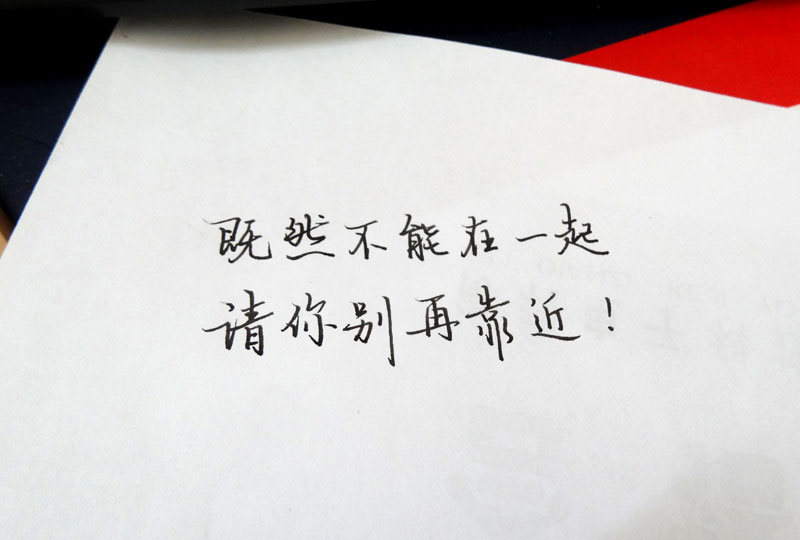 既然不能在一起
请你别再靠近！